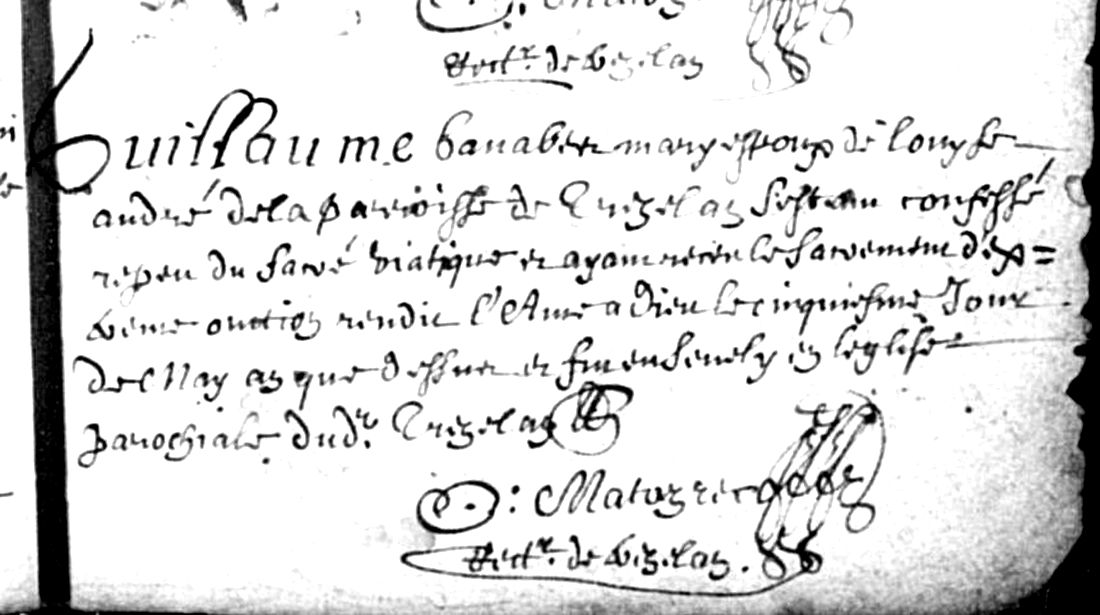 Rectr. de Trezelan
Guillaume banaber mary espoux de louyse
andré de la parroisse de Trezelan sestan confessé
repeu du sacré viatique et ayant receu le sacrement d'ex=
treme onction rendit l'Ame a dieu le cinquiesme Jour
de May an que dessus et fut ensevely en leglise
parochiale dudt. Trezelan
: Matoz rec
Rectr. de Trezelan.